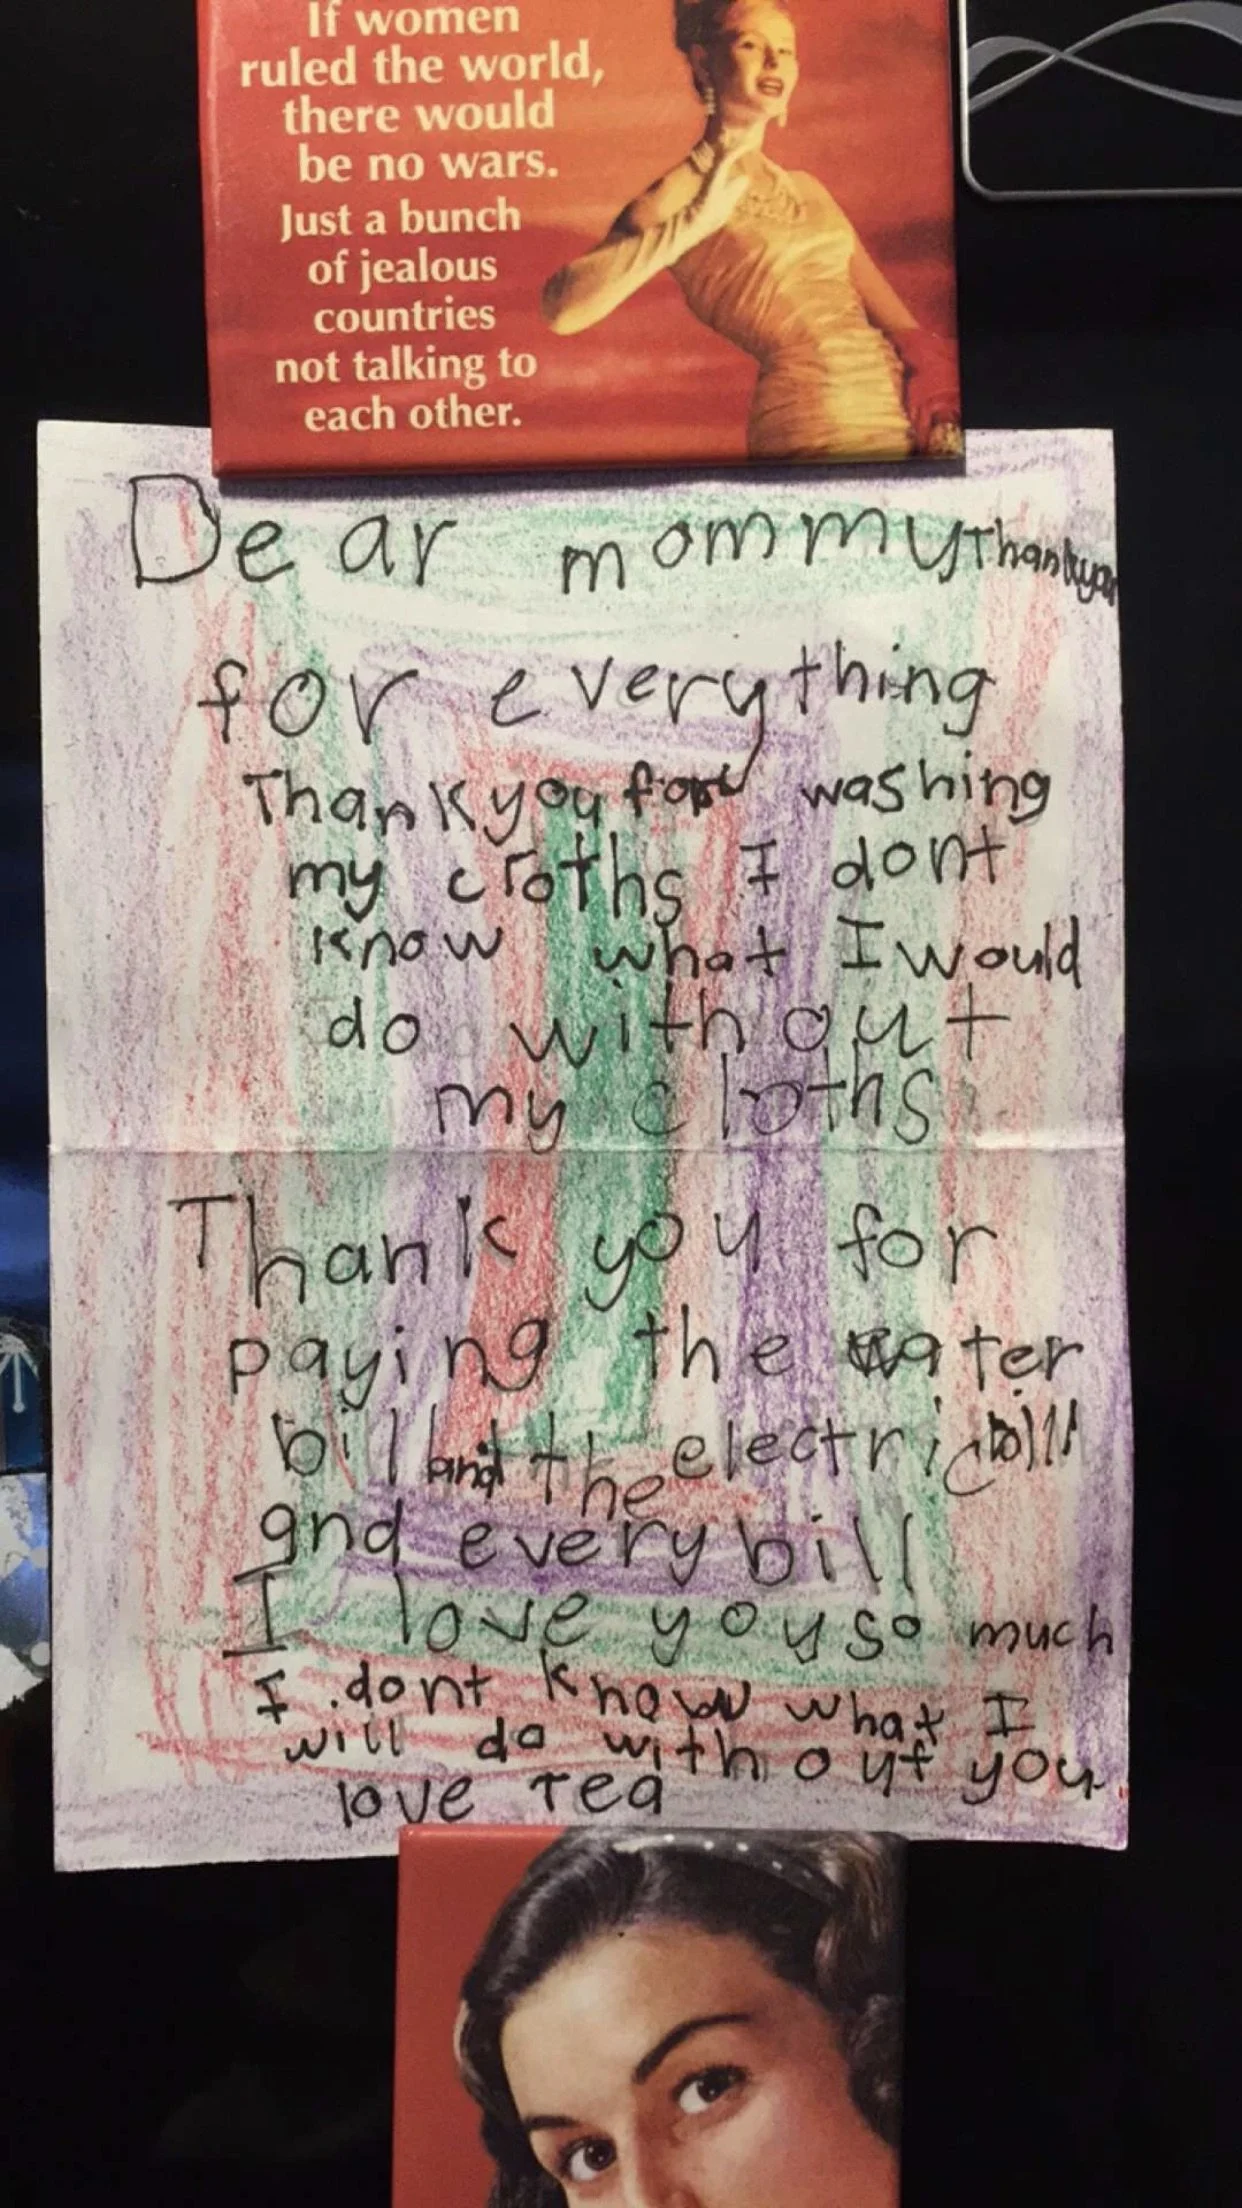 If women
ruled the world,
there would
be no wars.
Just a bunch
of jealous
countries
not talking to
each other.
Dear mommy Thankyou
for everything
Thank you for washing
my cloths I dont
know what I would
do without
my cloths
Thank you for
paying the water
bill and the electric bill
and every bill
I love you so much
I dont know what I
will do without you
love Tea